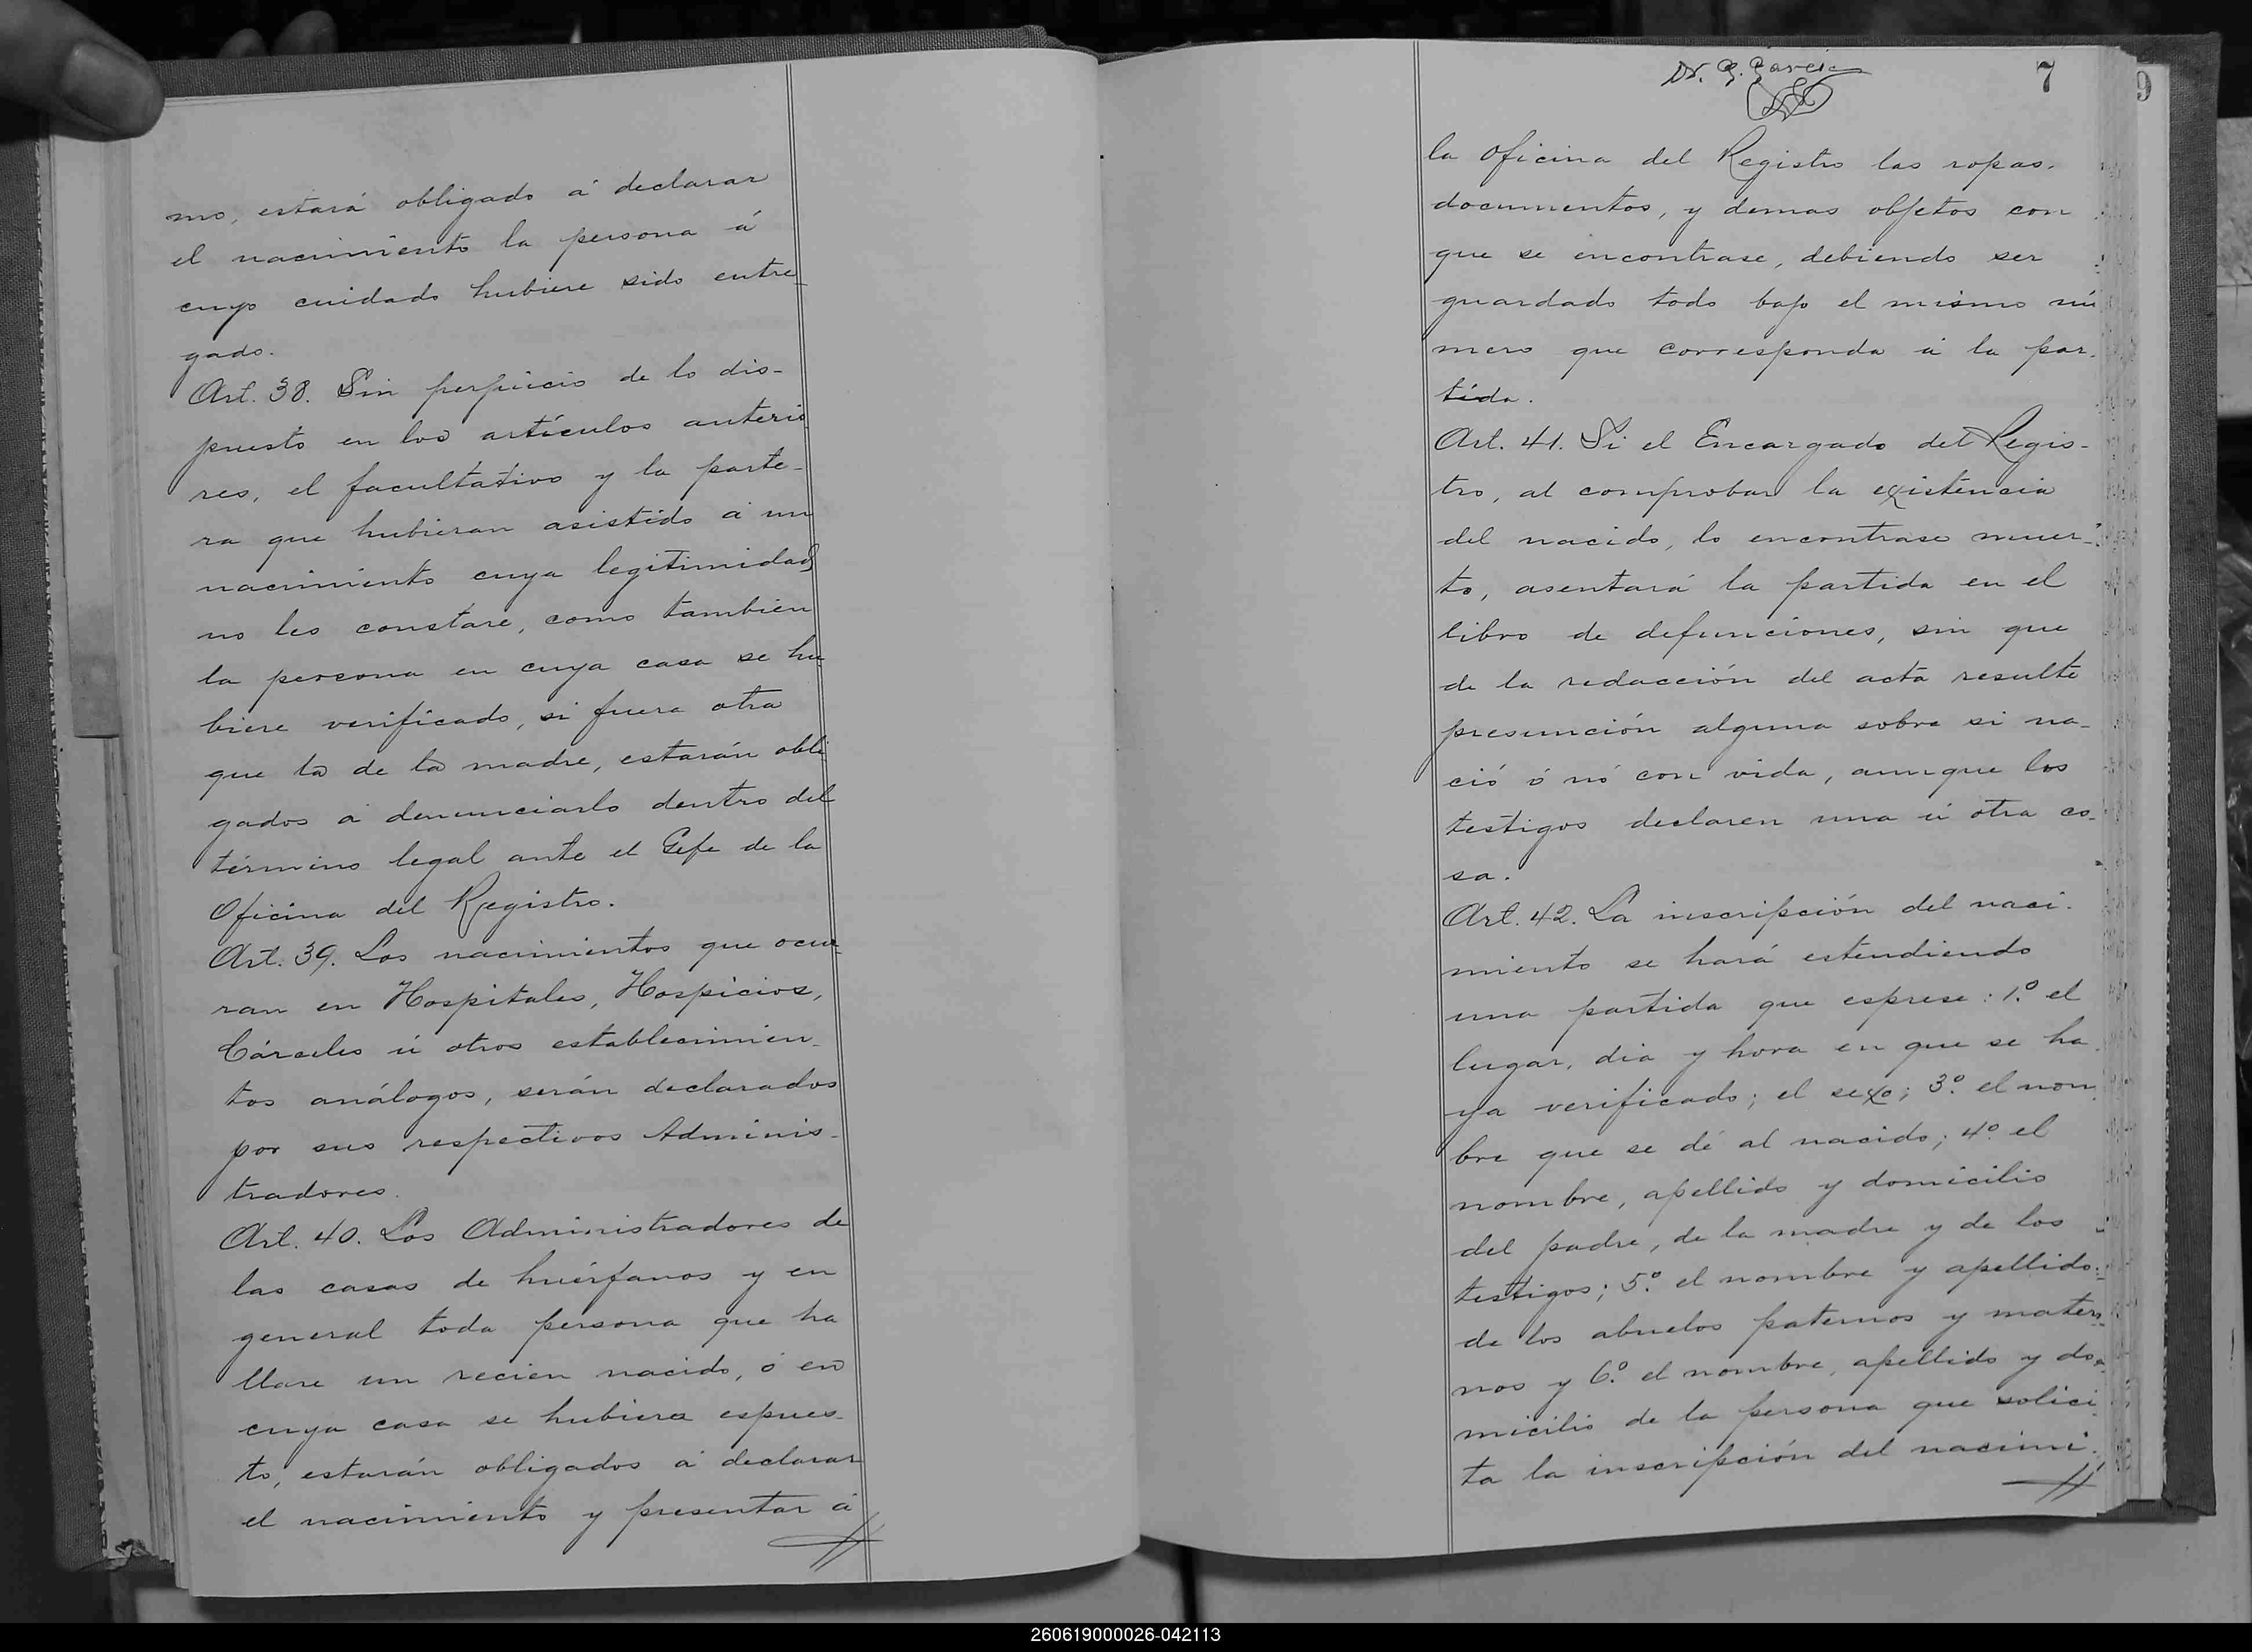 mo, estará obligado á declarar
el nacimiento la persona á
cuyo cuidado hubiere sido entre-
gado.
Art. 38. Sin perjuicio de lo dis-
puesto en los artículos anterio
res, el facultativo y la parte-
ra que hubieran asistido á un
nacimiento cuya legitimidad
no les constare, como tambien
la persona en cuya casa se hu-
biere verificado, si fuera otra
que la de la madre, estarán obli
gados á denunciarlo dentro del
término legal ante el Gefe de la
Oficina del Registro.
Art. 39. Los nacimientos que ocur-
ran en Hospitales, Hospicios,
Cárceles ú otros establecimien-
tos análogos, serán declarados
por sus respectivos Adminis-
tradores.
Art. 40. Los Administradores de
las casas de huérfanos y en
general toda persona que ha
llare un recien nacido, ó en
cuya casa se hubiera espues-
to, estarán obligados á declarar
el nacimiento y presentar á
Dr. G. Garcia
7
9
la Oficina del Registro las ropas,
documentos, y demas objetos con
que se encontrase, debiendo ser
guardado todo bajo el mismo nú
mero que corresponda á la par-
tida.
Art. 41. Si el Encargado del Regis-
tro, al comprobar la existencia
del nacido, lo encontrase muer-
to, asentará la partida en el
libro de defunciones, sin que
de la redacción del acta resulte
presunción alguna sobre si na-
ció ó nó con vida, aunque los
testigos declaren una ú otra co-
sa.
Art. 42. La inscripción del naci-
miento se hará estendiendo
una partida que esprese: 1.º el
lugar, dia y hora en que se ha
ya verificado; el sexo; 3.º el nom
bre que se dé al nacido; 4.º el
nombre, apellido y domicilio
del padre, de la madre y de los
testigos; 5.º el nombre y apellido
de los abuelos paternos y mater-
nos y 6.º el nombre, apellido y do-
micilio de la persona que solici
ta la inscripción del nacimi
260619000026-042113